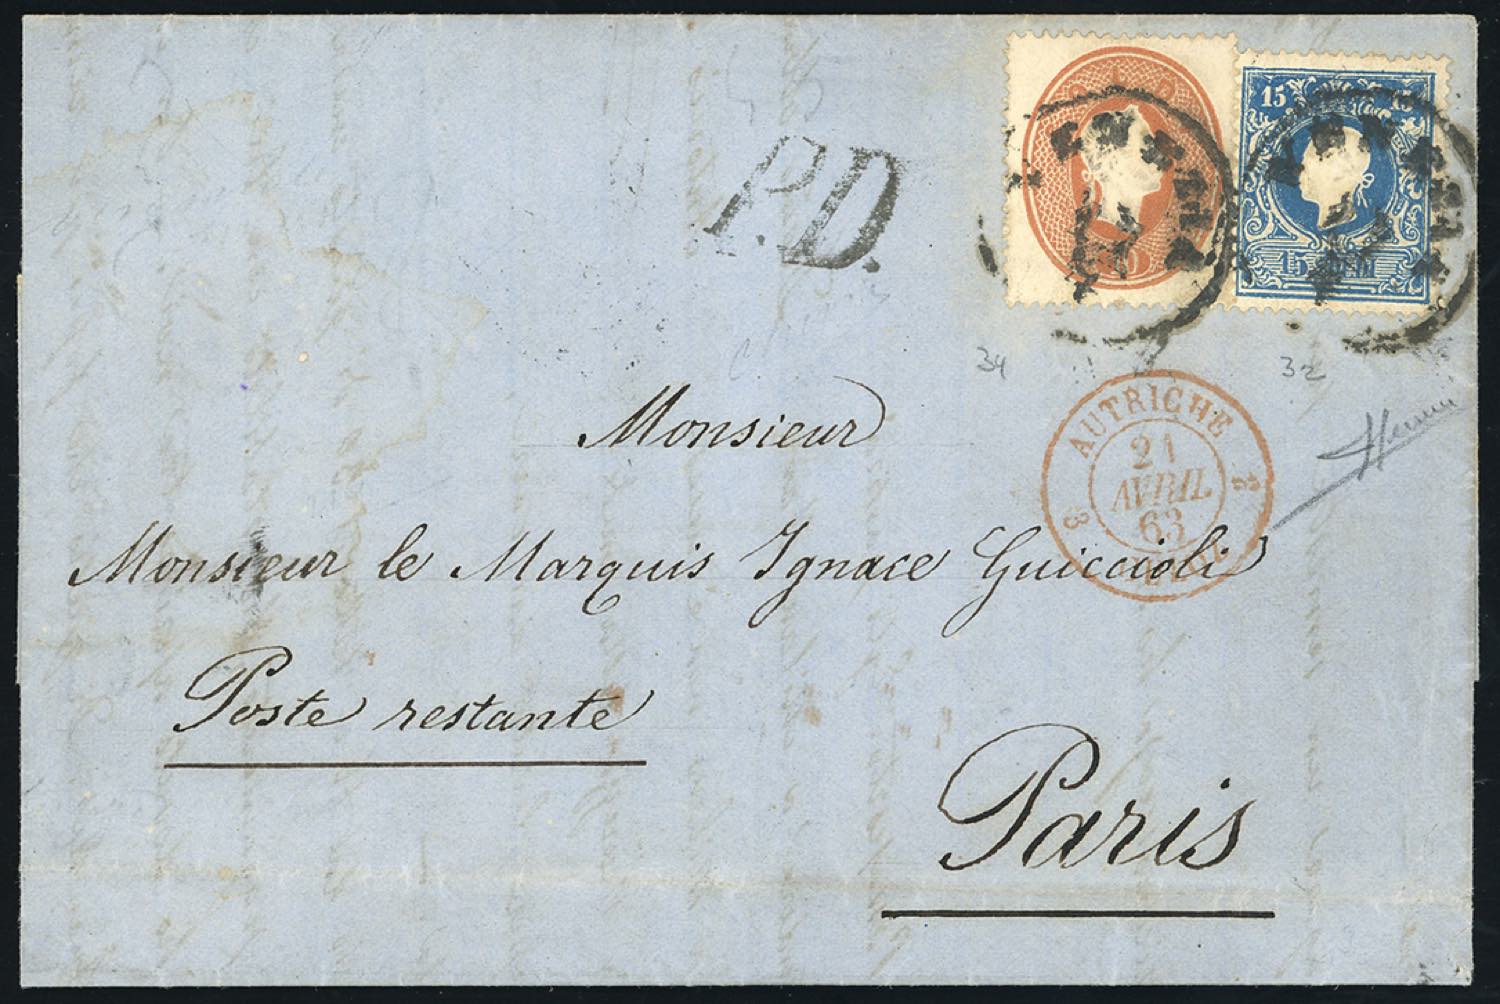 15 15
VENEZIA
VENEZIA
10
15 SOLDI
P.D.
34
32
Monsieur
AUTRICHE
21
AVRIL
63
3 2
Monsieur le Marquis Ignace Guiccioli
Poste restante
Paris